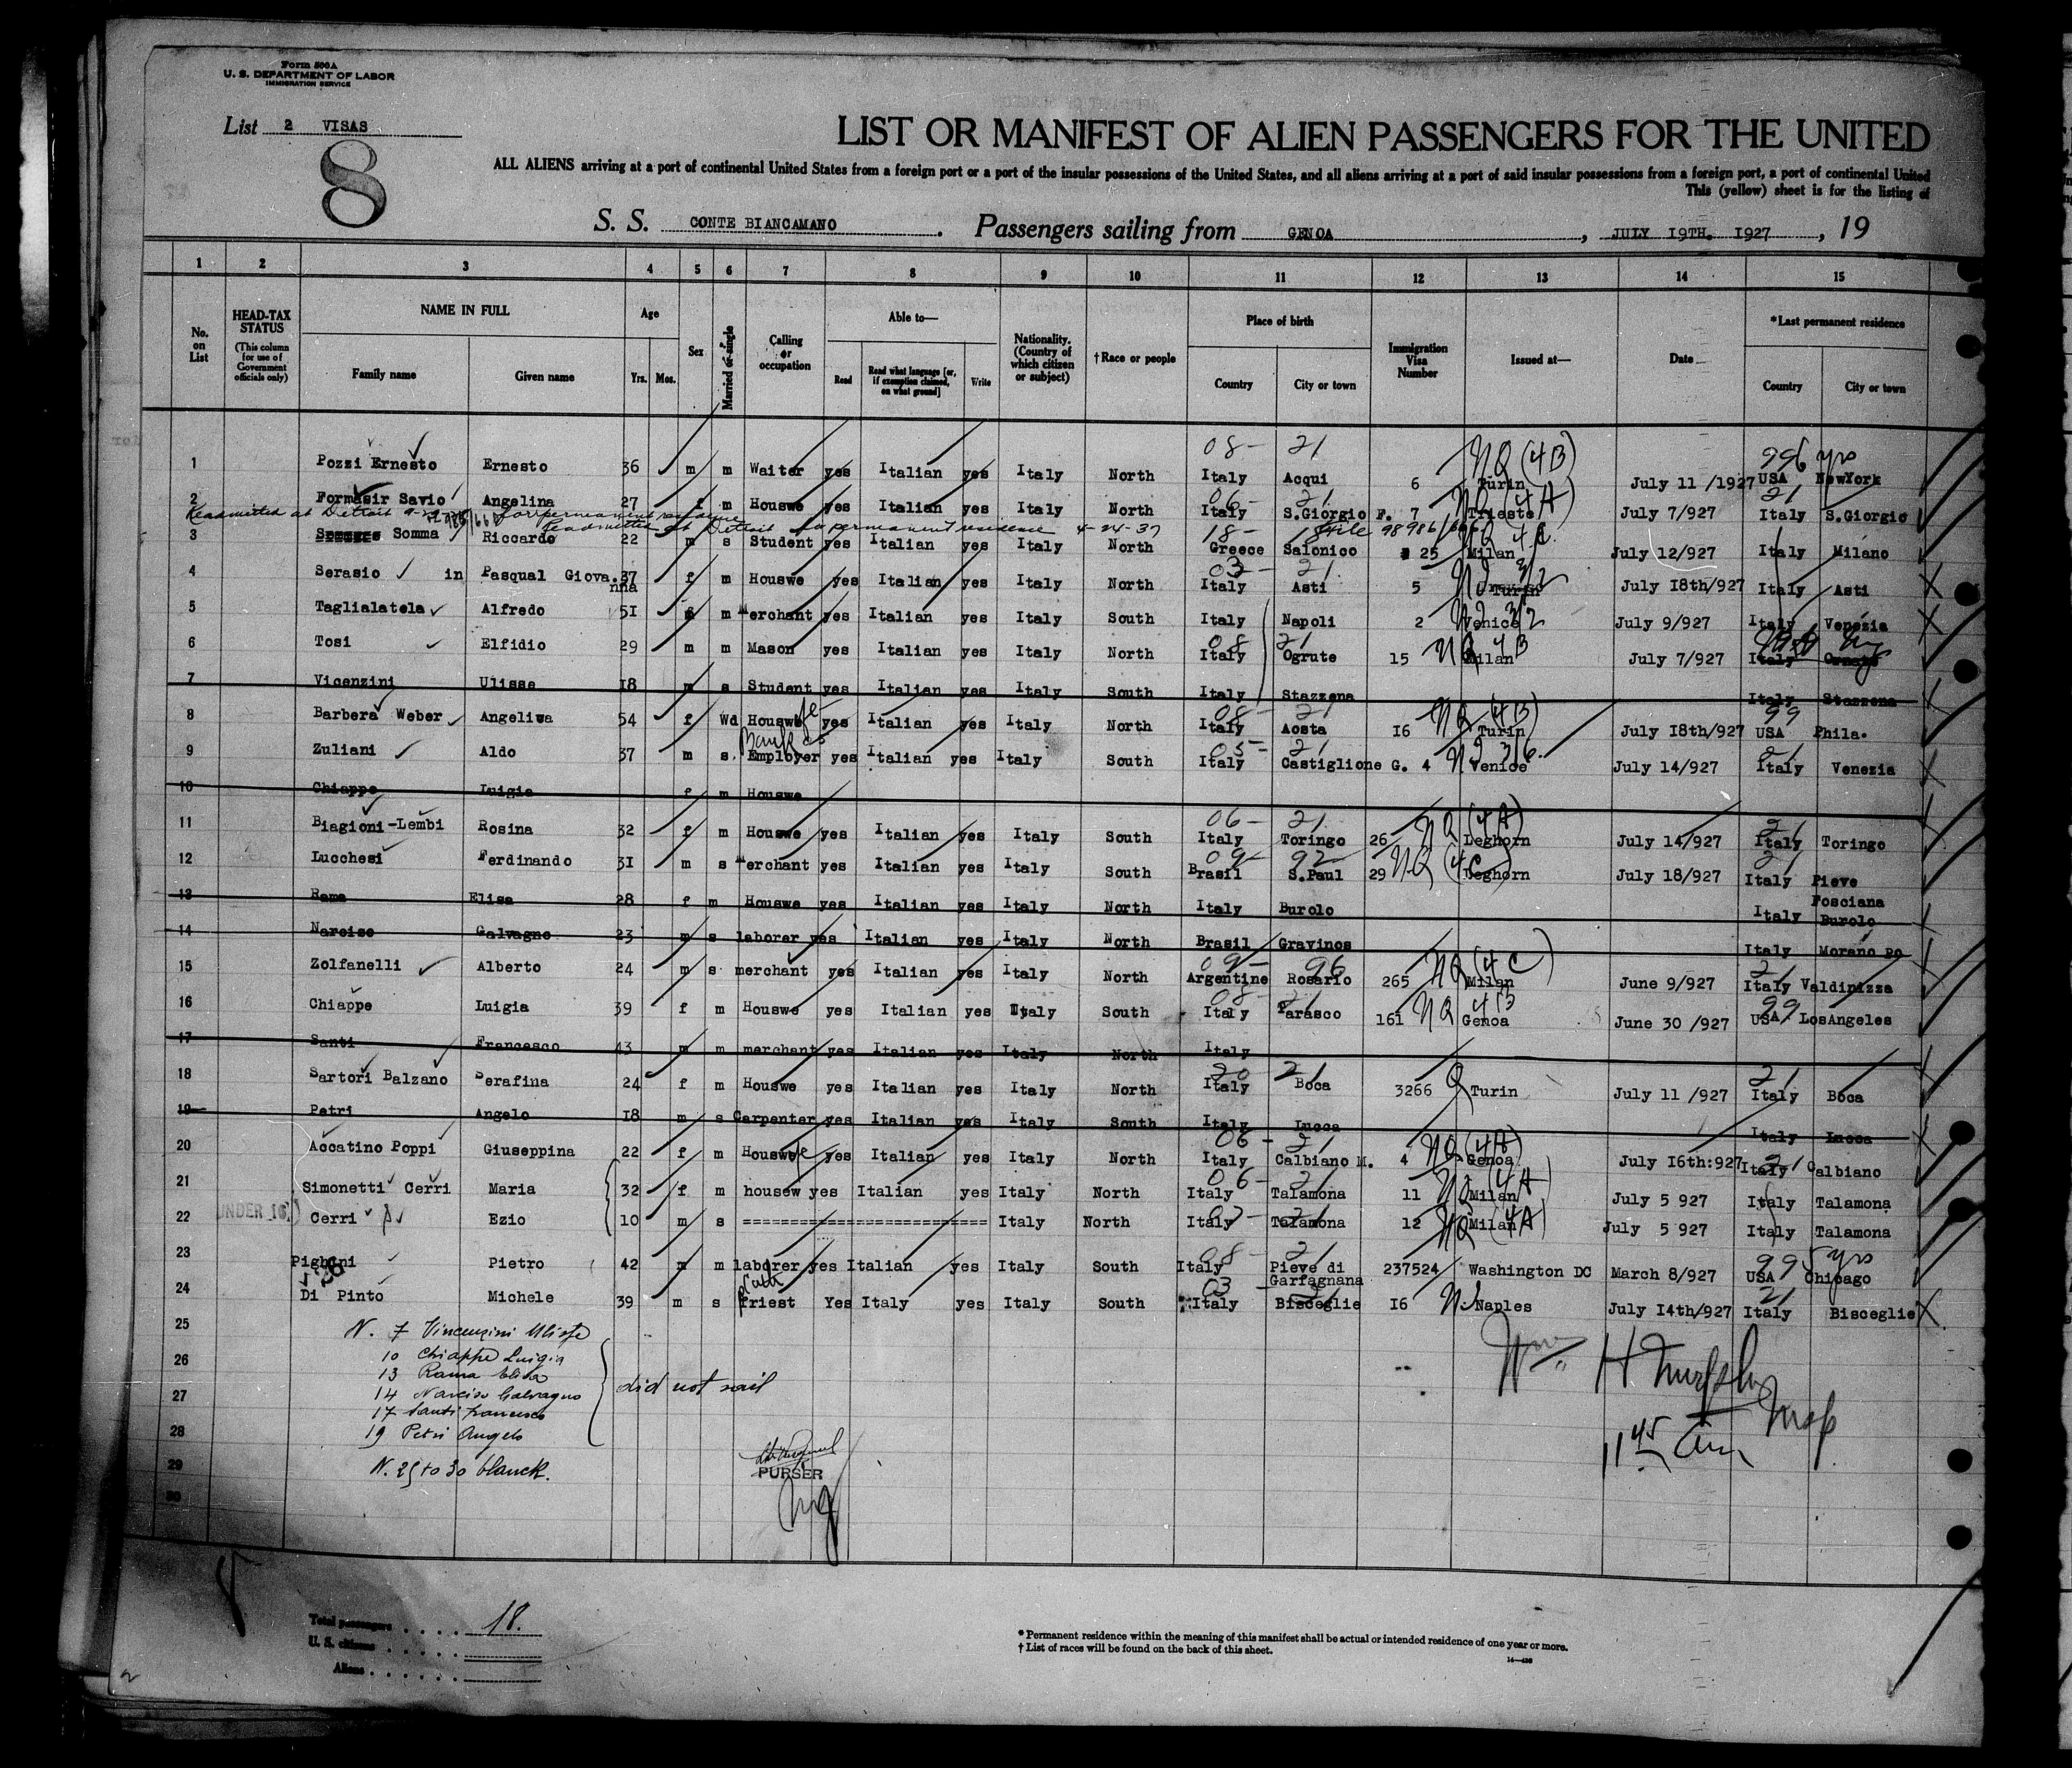 Form 500A
U. S. DEPARTMENT OF LABOR
IMMIGRATION SERVICE
List 2 VISAS
8
LIST OR MANIFEST OF ALIEN PASSENGERS FOR THE UNITED
ALL ALIENS arriving at a port of continental United States from a foreign port or a port of the insular possessions of the United States, and all aliens arriving at a port of said insular possessions from a foreign port, a port of continental United
This (yellow) sheet is for the listing of
S. S. CONTE BIANCAMANO. Passengers sailing from GENOA, JULY I9TH. I927, 19
1 2 3 4 5 6 7 8 9 10 11 12 13 14 15
No. on List
HEAD-TAX STATUS (This column for use of Government officials only)
NAME IN FULL Family name Given name
Age Yrs. Mos.
Sex
Married or single
Calling or occupation
Able to— Read Read what language [or, if exemption claimed, on what ground] Write
Nationality. (Country of which citizen or subject)
†Race or people
Place of birth Country City or town
Immigration Visa Number
Issued at—
Date
*Last permanent residence Country City or town
08- 21 NQ (4B) 996 yrs
1 Pozzi Ernesto Ernesto 36 m m Waiter yes Italian yes Italy North Italy Acqui 6 Turin July 11 /1927 USA NewYork
06- 21 NQ (4A) 21
2 Formasir Savio Angelina 27 f m Houswe yes Italian yes Italy North Italy S.Giorgio F. 7 Trieste July 7/927 Italy S.Giorgio
Readmitted at Detroit for permanent residence
Readmitted at Detroit for permanent residence 4-24-37 File 98986/66
18- NQ 4C
3 Somma Riccardo 22 m s Student yes Italian yes Italy North Greece Salonico 25 Milan July 12/927 Italy Milano
03- 21
4 Serasio in Pasqual Giova.nna 37 f m Houswe yes Italian yes Italy North Italy Asti 5 Turin July I8th/927 Italy Asti
5 Taglialatela Alfredo 5I m m Merchant yes Italian yes Italy South Italy Napoli 2 Venice July 9/927 Italy Venezia
08- 21 NQ 4B
6 Tosi Elfidio 29 m m Mason yes Italian yes Italy North Italy Ogrute 15 Milan July 7/927 Italy
7 Vicenzini Ulisse I8 m s Student yes Italian yes Italy South Italy Stazzena Italy Stazzena
08- 21 NQ (4B) 99
8 Barbera Weber Angeliva 54 f Wd Houswe yes Italian yes Italy North Italy Aosta I6 Turin July I8th/927 USA Phila.
05- 21 21
9 Zuliani Aldo 37 m s. Employer yes Italian yes Italy South Italy Castiglione G. 4 Venice July 14/927 Italy Venezia
10 Chiappe Luigia f m Houswe
06- 21 NQ (4A) 21
11 Biagioni-Lembi Rosina 32 f m Houswe yes Italian yes Italy South Italy Toringo 26 Leghorn July 14/927 Italy Toringo
09- 92 NQ (4C) 21
12 Lucchesi Ferdinando 3I m s Merchant yes Italian yes Italy South Brasil S.Paul 29 Leghorn July 18/927 Italy Pieve Fosciana
13 Rama Elisa 28 f m Houswe yes Italian yes Italy North Italy Burolo Italy Burolo
14 Narciso Galvagno 23 m s laborer yes Italian yes Italy North Brasil Gravinos Italy Morano Po
09- 96 NQ (4C) 21
15 Zolfanelli Alberto 24 m s merchant yes Italian yes Italy North Argentine Rosario 265 Milan June 9/927 Italy Valdinizza
08- 21 NQ 4B 99
16 Chiappe Luigia 39 f m Houswe yes Italian yes Italy South Italy Parasco 161 Genoa June 30 /927 USA LosAngeles
17 Santi Francesco 43 m m merchant yes Italian yes Italy North Italy
20 21 Q 21
18 Sartori Balzano Serafina 24 f m Houswe yes Italian yes Italy North Italy Boca 3266 Turin July 11 /927 Italy Boca
19 Petri Angelo I8 m s Carpenter yes Italian yes Italy South Italy Lucca Italy Lucca
06- 21 NQ (4A) 21
20 Accatino Poppi Giuseppina 22 f m Houswe yes Italian yes Italy North Italy Calbiano M. 4 Genoa July I6th:927 Italy Calbiano
06- 21 NQ 4A
21 Simonetti Cerri Maria 32 f m housew yes Italian yes Italy North Italy Talamona 11 Milan July 5 927 Italy Talamona
UNDER 16
NQ (4A)
22 Cerri Ezio 10 m s ========================== Italy North Italy Talamona 12 Milan July 5 927 Italy Talamona
08- 21 99 5 yrs
23 Pighini Pietro 42 m m laborer yes Italian yes Italy South Italy Pieve di Garfagnana 237524 Washington DC March 8/927 USA Chicago
03- 21 21
24 Di Pinto Michele 39 m s Priest Yes Italy yes Italy South Italy Bisceglie I6 Naples July I4th/927 Italy Bisceglie
25 N. 7 Vincenzini Ulisse
26 10 Chiappe Luigia
13 Rama Elisa
27 14 Narciso Galvagno did not sail
17 Santi Francesco
28 19 Petri Angelo
29 N. 25 to 30 blanck.
30
Wm. H Murphy
11 45 am
PURSER
Total passengers 18.
U. S. citizens
Aliens
* Permanent residence within the meaning of this manifest shall be actual or intended residence of one year or more.
† List of races will be found on the back of this sheet.
2